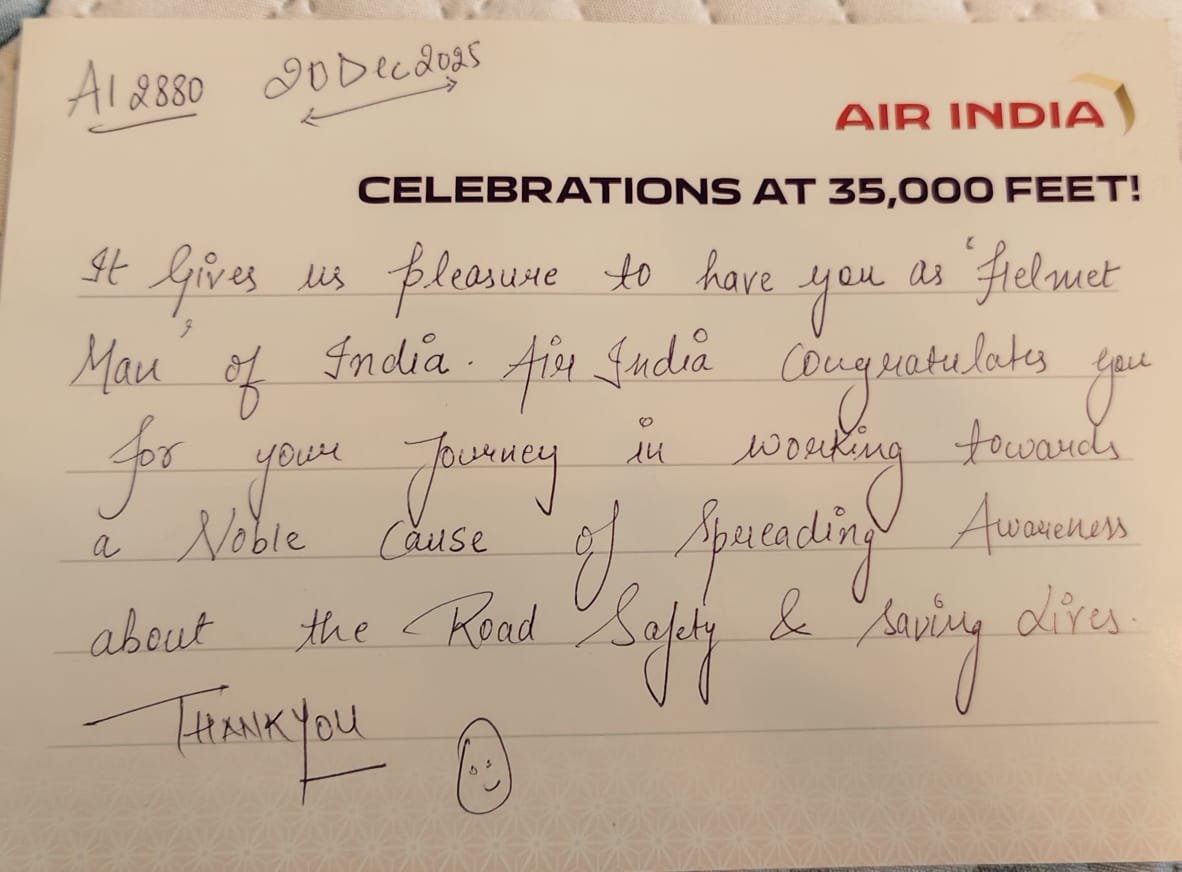 AI 2880 20 Dec 2025
AIR INDIA
CELEBRATIONS AT 35,000 FEET!
It Gives us pleasure to have you as 'Helmet
Man' of India. Air India Congratulates you
for your Journey in working towards
a Noble Cause of Spreading Awareness
about the Road Safety & Saving Lives.
THANK YOU